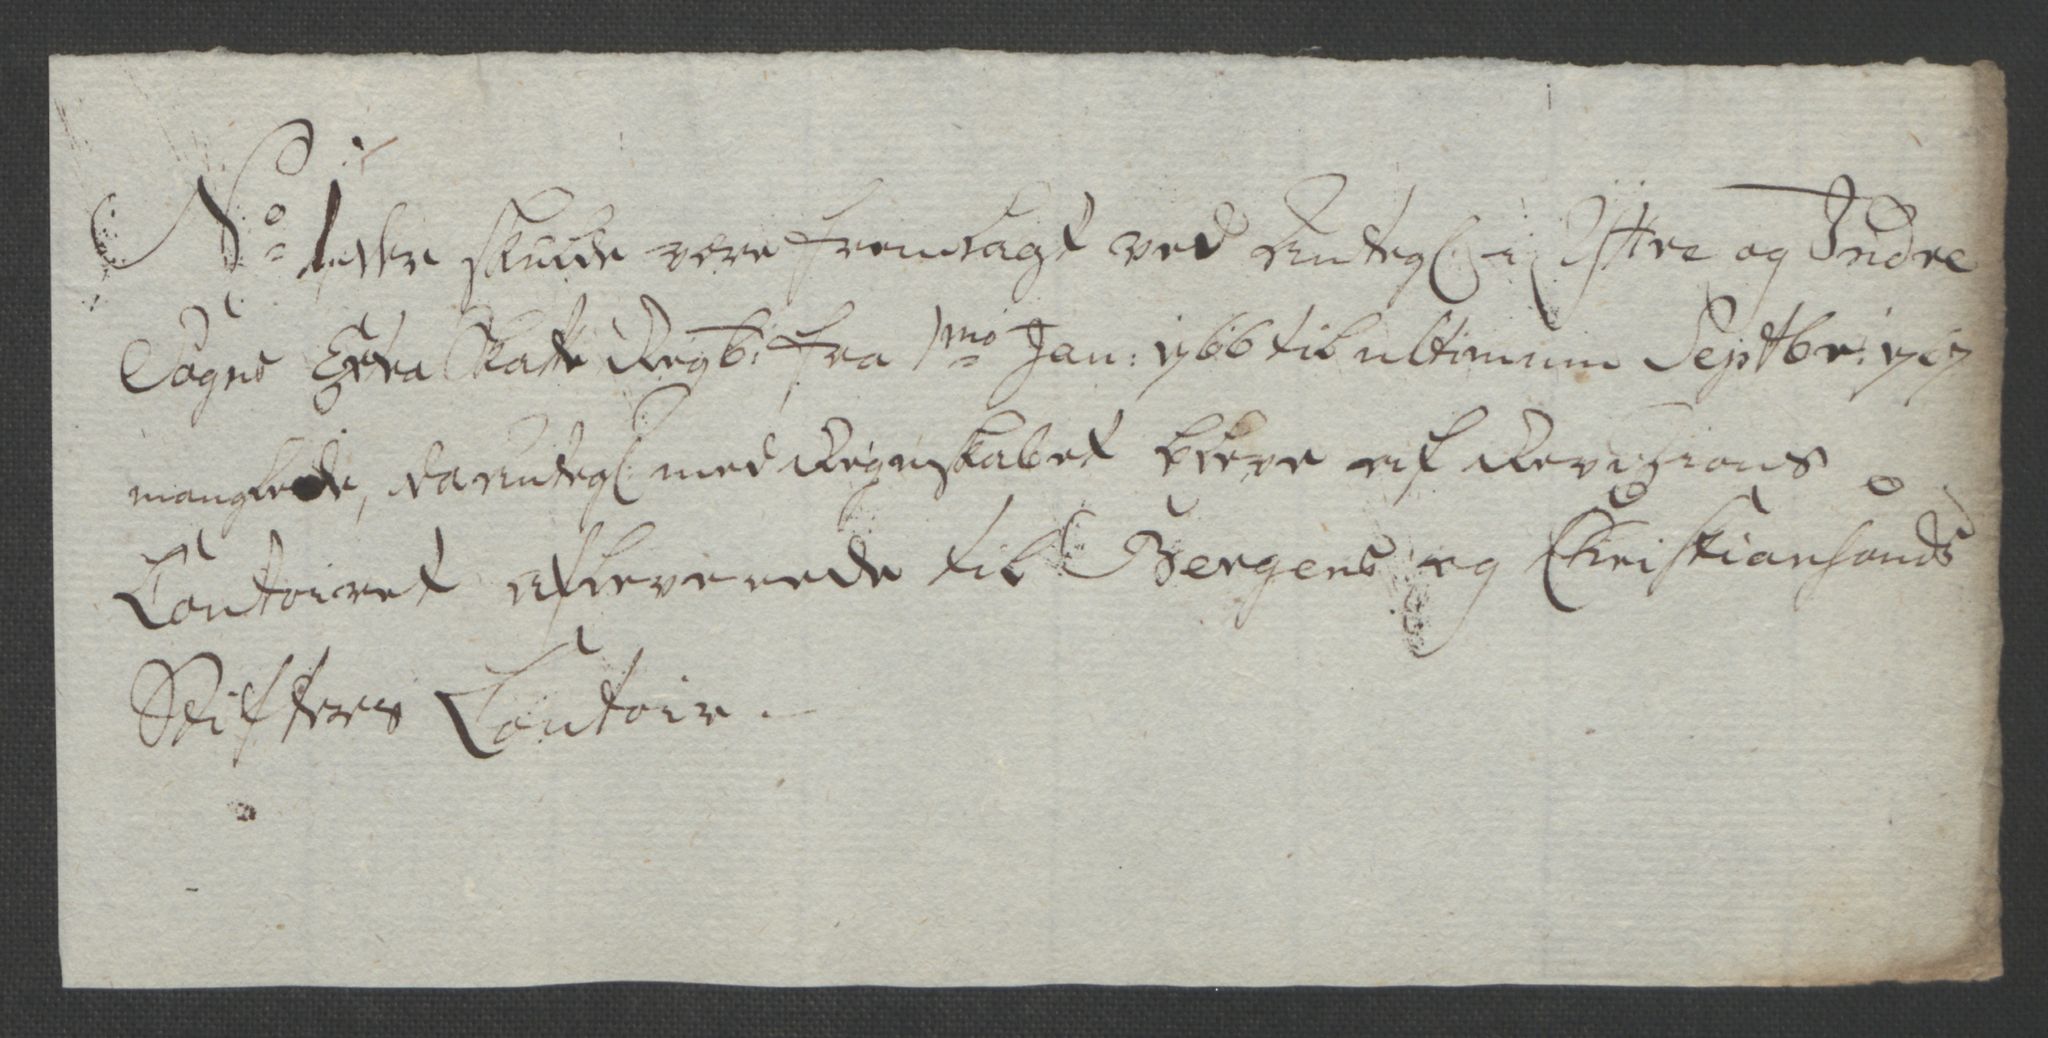 No 1 ster skulde være fremlagt ved Antegn: i Yttre og Indre
Sogns Extra Skatte Regsk: fra 1mo Jan: 1766 til ultimum Septbr: 1767
manglede, da Antegn: med Regnskabet bleve af Revisions
Contoiret afleverede til Bergens og Christiansands
Stifters Contoir.